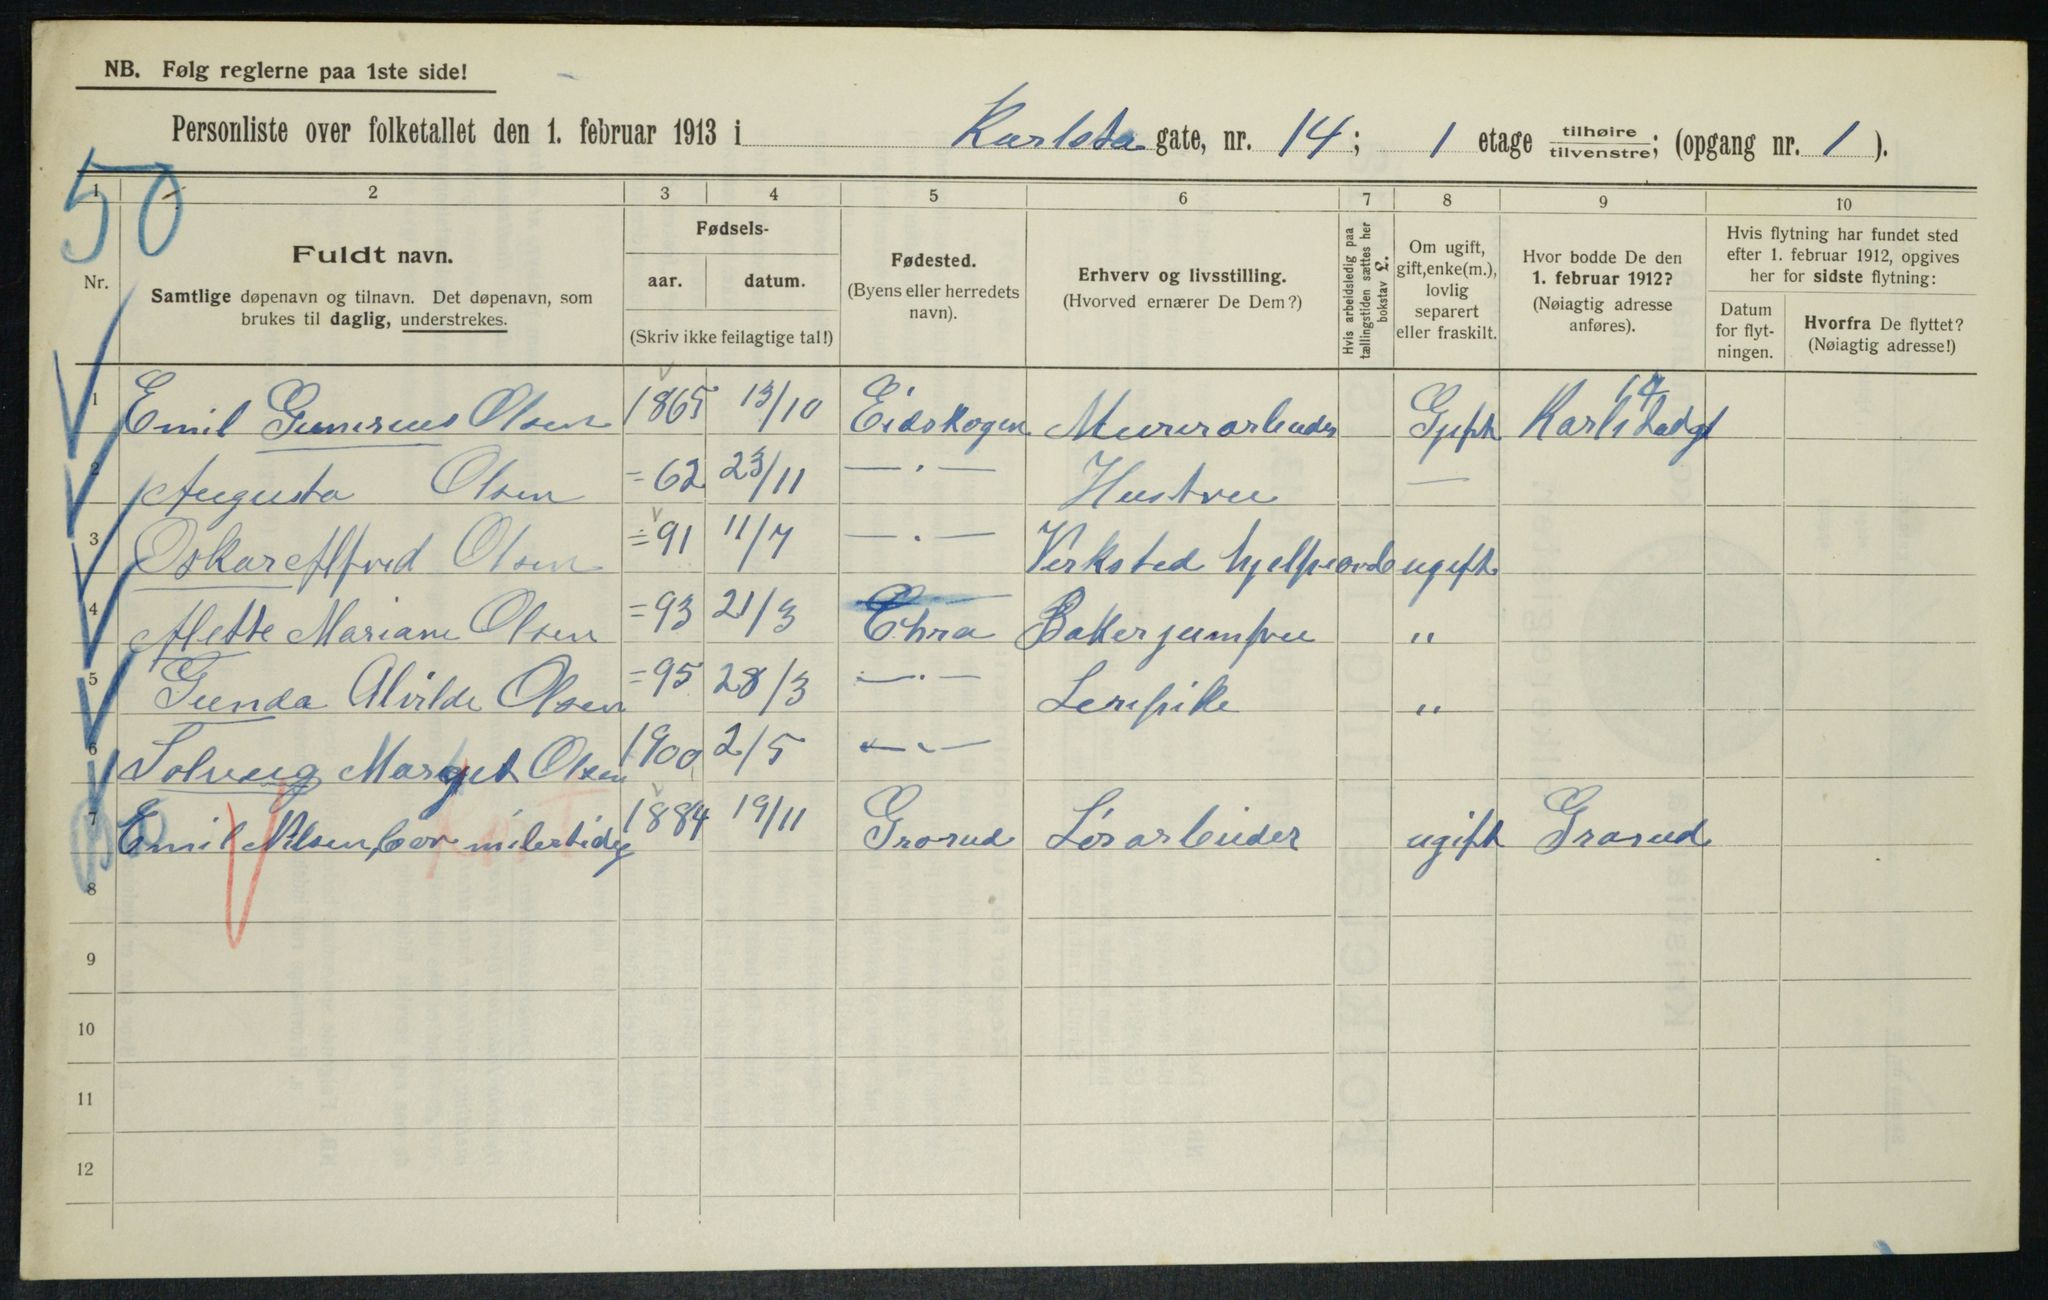 NB. Følg reglerne paa 1ste side!
Personliste over folketallet den 1. februar 1913 i Karlsta gate, nr. 14; 1 etage tilhøire / tilvenstre; (opgang nr. 1 ).
50
1 2 3 4 5 6 7 8 9 10
Nr.
Fuldt navn.
Samtlige døpenavn og tilnavn. Det døpenavn, som
brukes til daglig, understrekes.
Fødsels-
aar. datum.
(Skriv ikke feilagtige tal!)
Fødested.
(Byens eller herredets
navn).
Erhverv og livsstilling.
(Hvorved ernærer De Dem?)
Hvis arbeidsledig paa
tællingstiden sættes her
bokstav £.
Om ugift,
gift, enke(m.),
lovlig
separert
eller fraskilt.
Hvor bodde De den
1. februar 1912?
(Nøiagtig adresse
anføres).
Hvis flytning har fundet sted
efter 1. februar 1912, opgives
her for sidste flytning:
Datum
for flyt-
ningen.
Hvorfra De flyttet?
(Nøiagtig adresse!)
1 Emil Gunerius Olsen 1865 13/10 Eidskogen Murerarbeider Gift Karlstadgt 14
2 Augusta Olsen =62 23/11 —·— Hustru —
3 Oskar Alfred Olsen =91 11/7 —·— Verksted hjelpearb ugift
4 Alette Mariane Olsen =93 21/3 Ekra Bakerjumfru "
5 Gunda Alvilde Olsen =95 28/3 —·— Lerepike "
6 Solveig Marget Olsen 1900 2/5 —·—
7 Emil Nilsen, bor milertidig 1884 19/11 Grorud Lösarbeider ugift Grorud
8
9
10
11
12